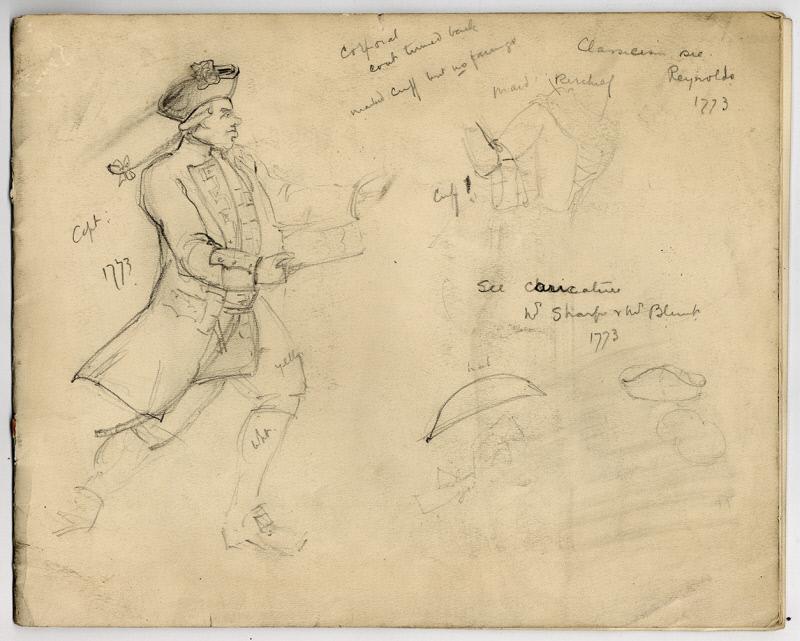 Corporal
coat turned back
marked cuff but no facings
Classicism see
Reynolds
1773
maid: Kerchief
Cuff!
Capt:
1773
See caricature
Mr Sharp & Mr Blunt
1773
hat
yellow
wht.